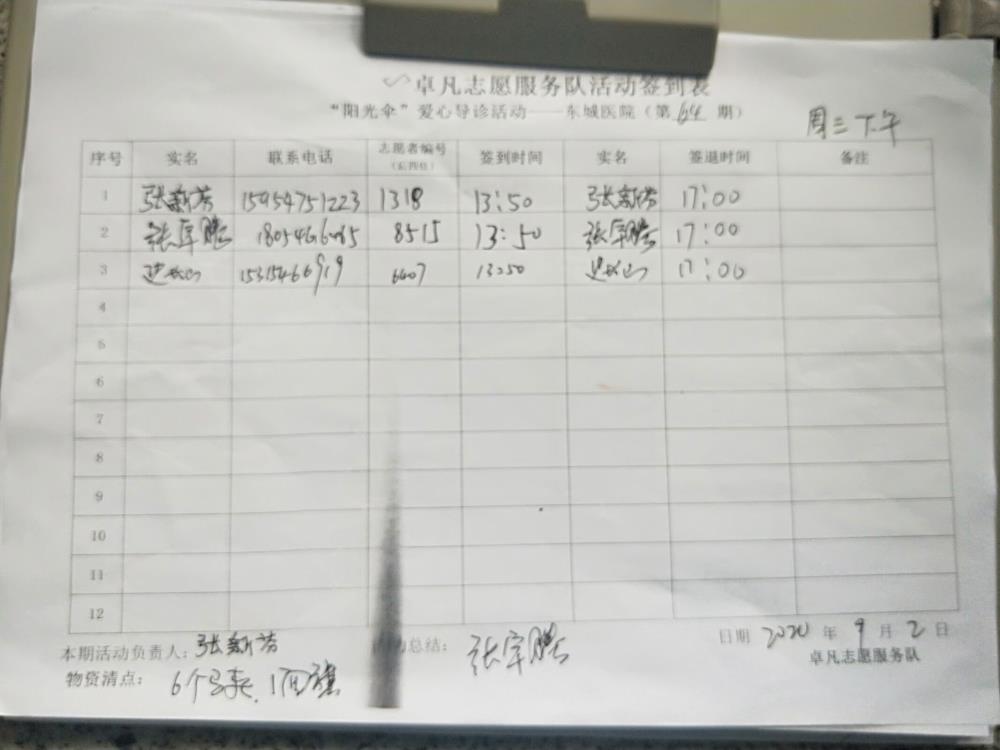 卓凡志愿服务队活动签到表
“阳光伞”爱心导诊活动——东城医院（第64期）
周三下午
序号 实名 联系电话 志愿者编号（后四位） 签到时间 实名 签退时间 备注
1 张新芳 15954751223 1318 13:50 张新芳 17:00
2 张宇鹏 8515 13:50 张宇鹏 17:00
3 15315466919 6407 13:50 17:00
4
5
6
7
8
9
10
11
12
本期活动负责人：张新芳 总结：张宇鹏 日期 2020 年 9 月 2 日
物资清点：6个马夹，1面旗 卓凡志愿服务队